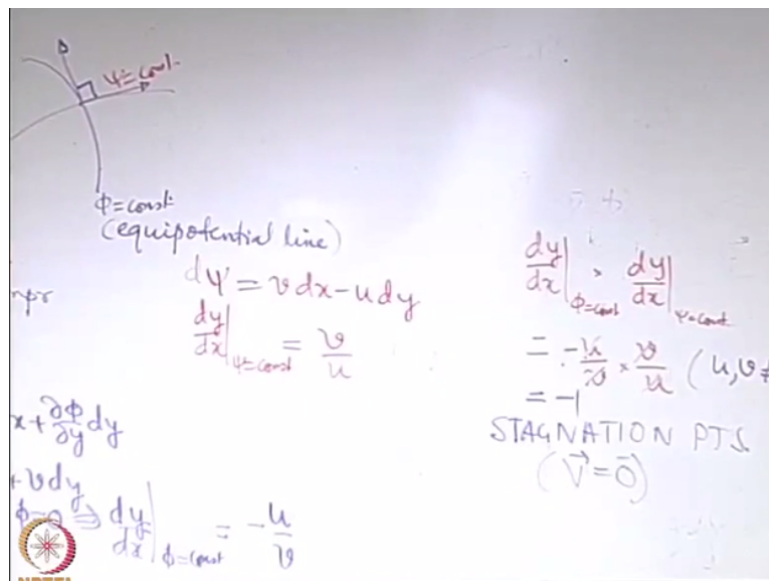 ψ=const.
ϕ=const
(equipotential line)
dψ = vdx-udy
dy/dx|ψ=const = v/u
x+∂ϕ/∂y dy
+vdy
ϕ=0 ⇒ dy/dx|ϕ=const = -u/v
dy/dx|ϕ=const × dy/dx|ψ=const
= -u/v × v/u (u,v≠
= -1
STAGNATION PTS.
(V⃗=0⃗)
NPTEL